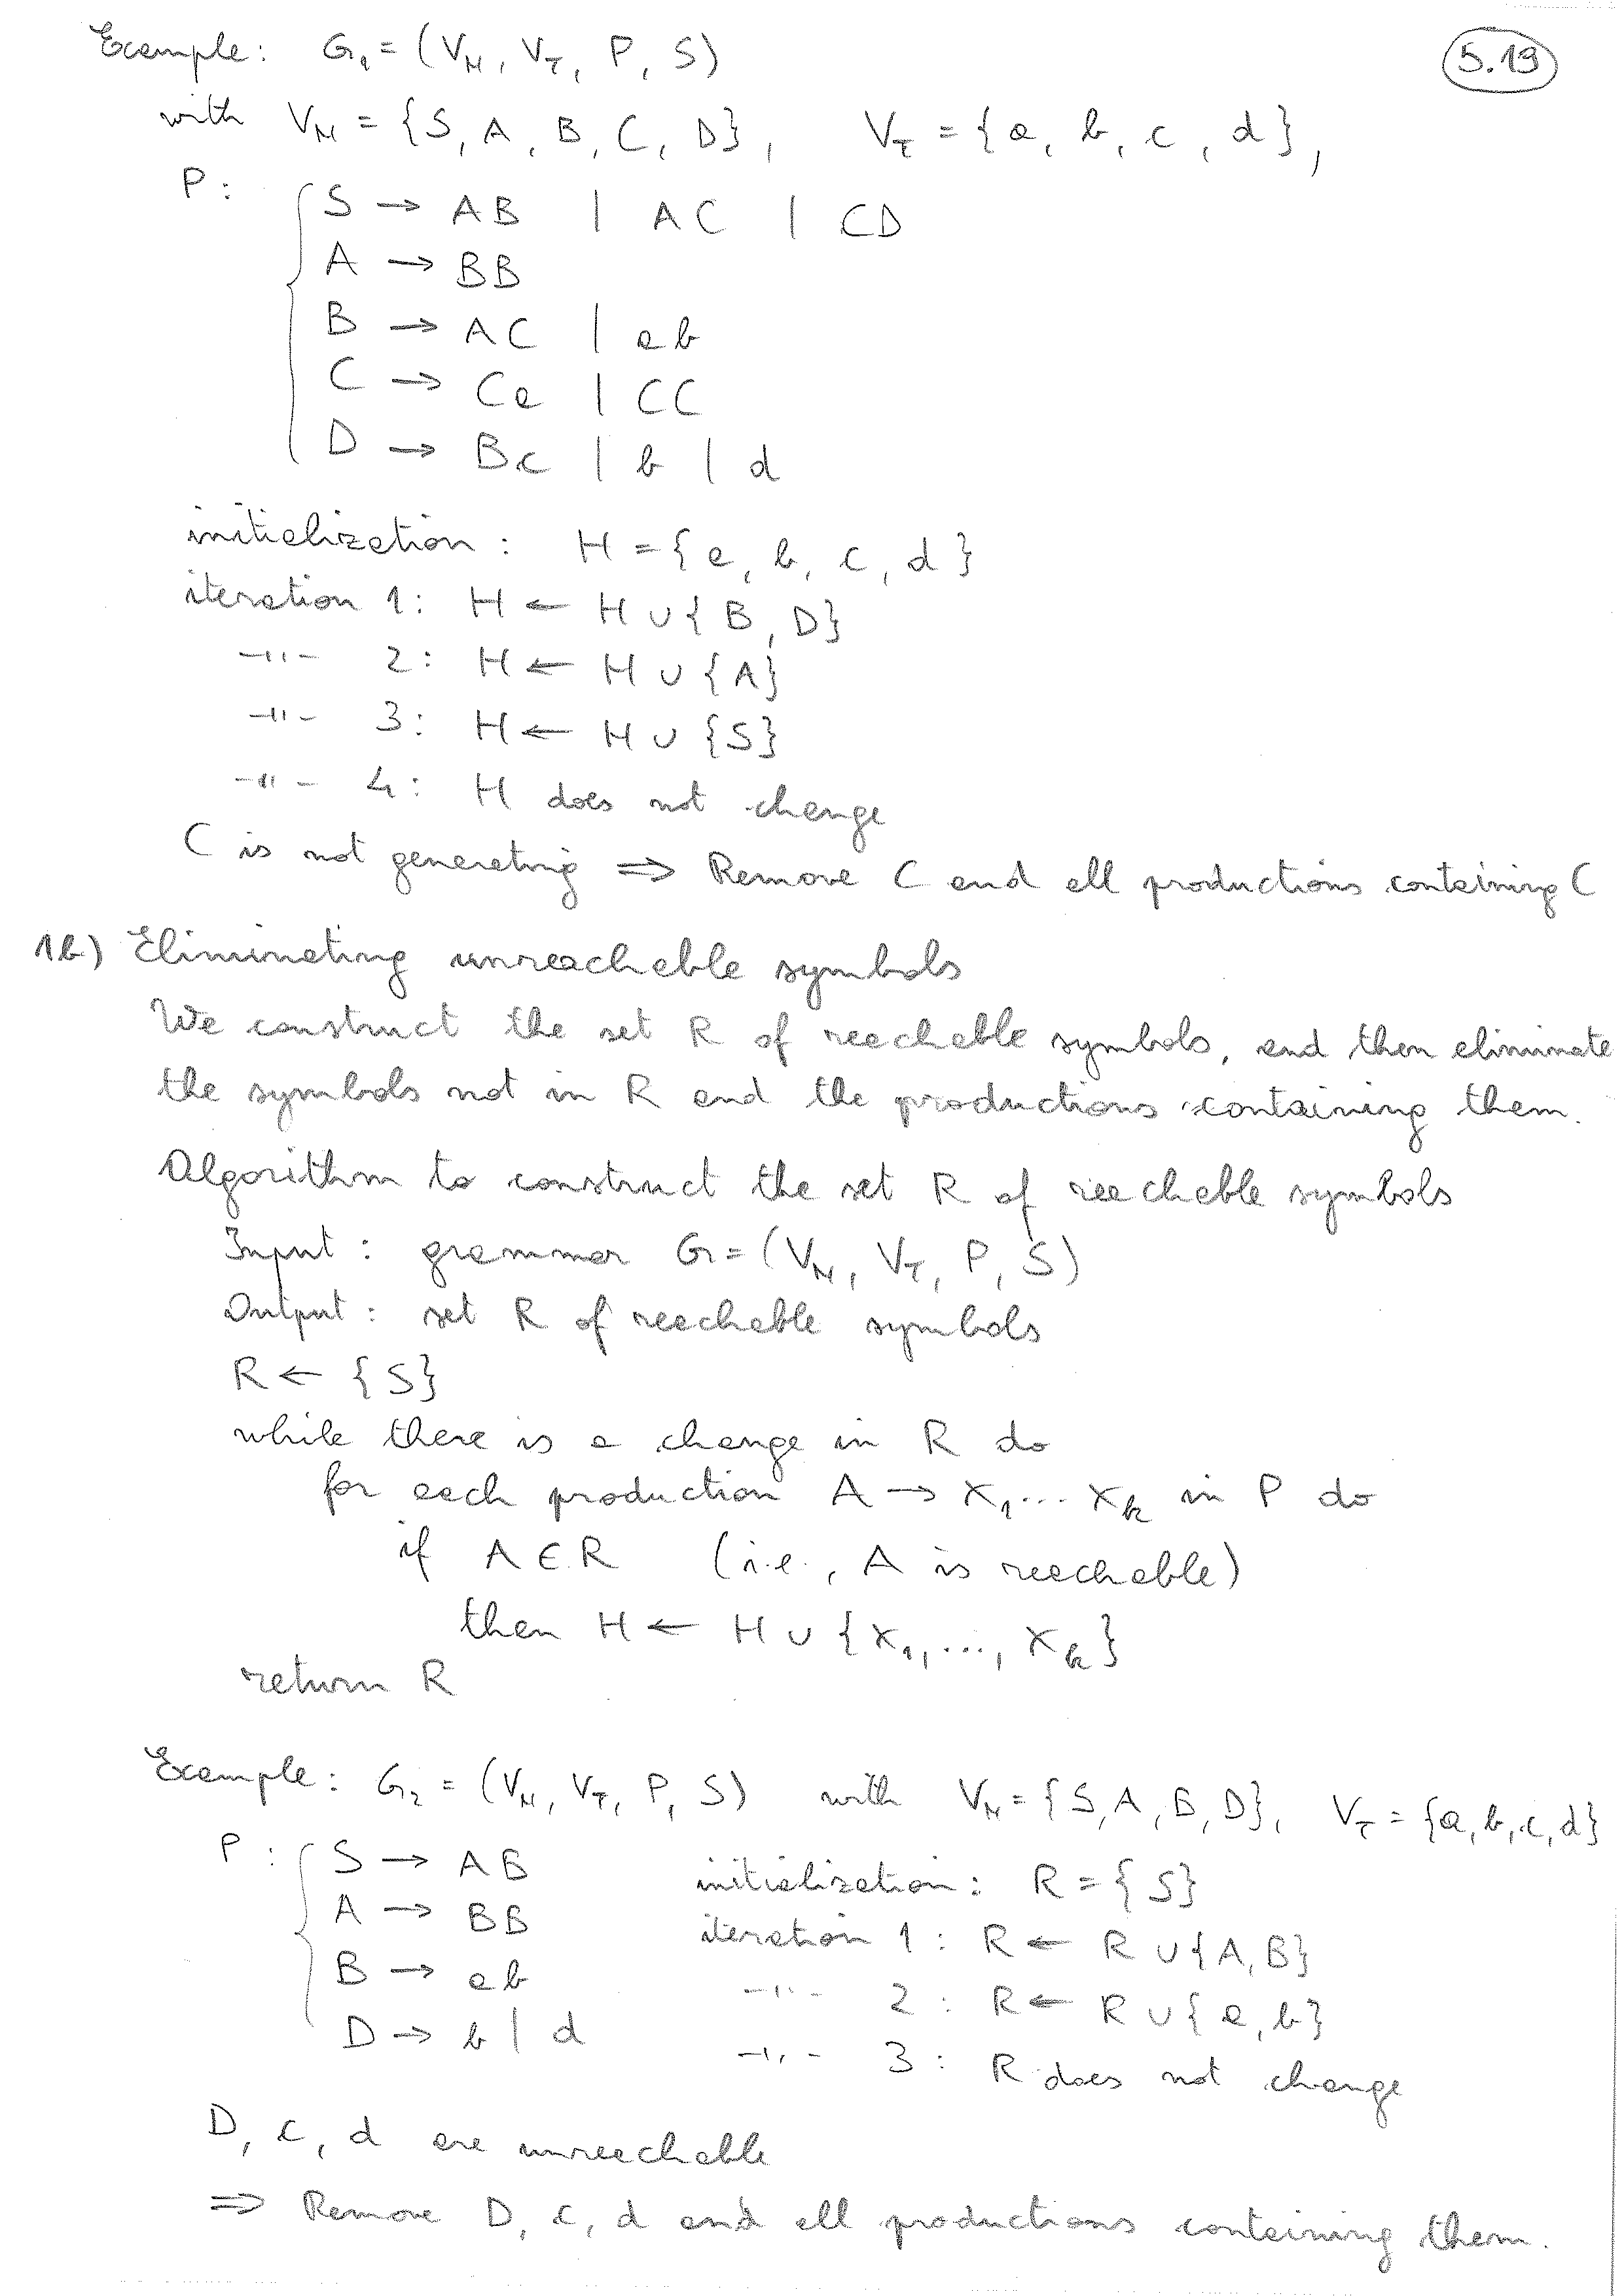 Example: G₁ = (V_N, V_T, P, S)
5.19
with V_N = {S, A, B, C, D}, V_T = {a, b, c, d},
P: S → AB | AC | CD
A → BB
B → AC | ab
C → Ca | CC
D → Bc | b | d
initialization: H = {a, b, c, d}
iteration 1: H ← H ∪ {B, D}
-"- 2: H ← H ∪ {A}
-"- 3: H ← H ∪ {S}
-"- 4: H does not change
C is not generating ⇒ Remove C and all productions containing C
1b) Eliminating unreachable symbols
We construct the set R of reachable symbols, and then eliminate
the symbols not in R and the productions containing them.
Algorithm to construct the set R of reachable symbols
Input: grammar G = (V_N, V_T, P, S)
Output: set R of reachable symbols
R ← {S}
while there is a change in R do
for each production A → X₁...X_k in P do
if A ∈ R (i.e., A is reachable)
then H ← H ∪ {X₁,..., X_k}
return R
Example: G₂ = (V_N, V_T, P, S) with V_N = {S, A, B, D}, V_T = {a, b, c, d}
P: S → AB
A → BB
B → ab
D → b | d
initialization: R = {S}
iteration 1: R ← R ∪ {A, B}
-"- 2: R ← R ∪ {a, b}
-"- 3: R does not change
D, c, d are unreachable
⇒ Remove D, c, d and all productions containing them.